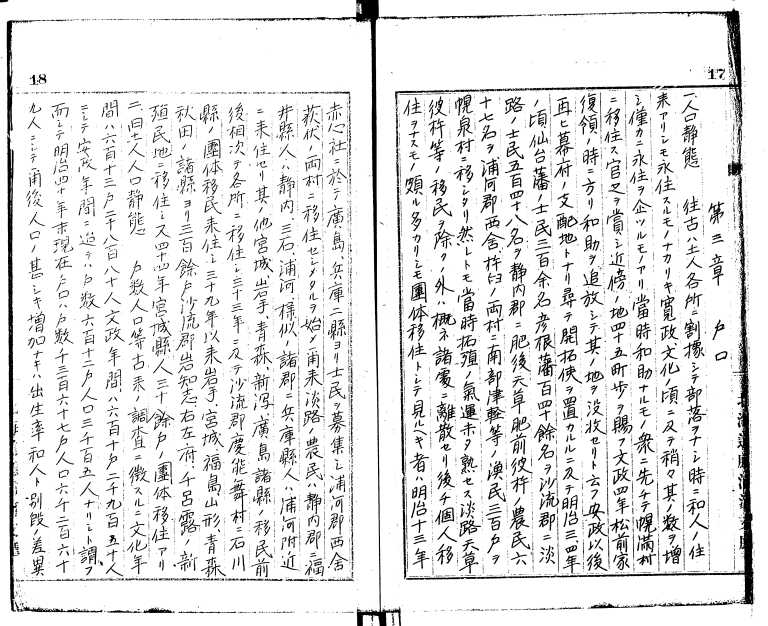 17
第三章 戸口
一人口靜態 往古ハ土人各所ニ割據シテ部落ヲナシ時ニ和人ノ住
来アリシモ永住スルモノナカリキ寛政、文化ノ頃ニ及テ稍々其ノ数ヲ増
シ僅カニ永住ヲ企ツルモノアリ當時和助ナルモノ衆ニ先チテ幌満村
ニ移住ス官之ヲ賞シ近傍ノ地四十五町歩ヲ賜フ文政四年松前家
復領ノ時ニ方リ和助ヲ追放シテ其ノ地ヲ没收セリト云フ安政以後
再ヒ幕府ノ支配地トナリ尋テ開拓使ヲ置カルルニ及テ明治三、四年
ノ頃仙台藩ノ士民三百余名彦根藩百四十餘名ヲ沙流郡ニ淡
路ノ士民五百四十八名ヲ靜内郡ニ肥後天草肥前彼杵ノ農民六
十七名ヲ浦河郡西舎杵臼ノ両村ニ南部津軽等ノ漁民三百戸ヲ
幌泉村ニ移シタリ然レトモ當時拓殖ノ氣運未タ熟セス淡路天草
彼杵等ノ移民ヲ除クノ外ハ概ネ諸處ニ離散セリ後チ個人移
住ヲナスモノ頗ル多カリシモ團体移住トシテ見ルヘキ者ハ明治十三年
18
赤心社ニ於テ廣島、兵庫二縣ヨリ士民ヲ募集シ浦河郡西舎
荻伏ノ両村ニ移住セシメタルヲ始メ甬来淡路ノ農民ハ靜内郡ニ福
井縣人ハ靜内、三石、浦河、様似ノ諸郡ニ兵庫縣人ハ浦河附近
ニ来住セリ其ノ他宮城、岩手、青森、新潟、廣島諸縣ノ移民前
後相次テ各所ニ移住シ三十三年ニ及テ沙流郡慶能舞村ニ石川
縣ノ團体移民来住シ三十九年以来岩手、宮城、福島、山形、青森
秋田ノ諸縣ヨリ三百餘戸沙流郡岩知志右左府、千呂露ノ新
殖民地ニ移住シ又四十四年宮城縣人三十餘戸ノ團体移住アリ
二、旧土人人口靜態 戸数人口等古来ノ調査ニ徴スルニ文化年
間ハ六百十三戸二千八百八十人文政年間ハ六百十戸二千九百五十人
ニシテ安政年間ニ迨テハ戸数六百十二戸人口三千百五人ナリシト謂フ
而シテ明治四十年末現在戸口ハ戸数千三百六十七戸人口六千二百六十
九人ニシテ甬後人口ノ甚シキ増加ナキハ出生率和人ト別段ノ差異